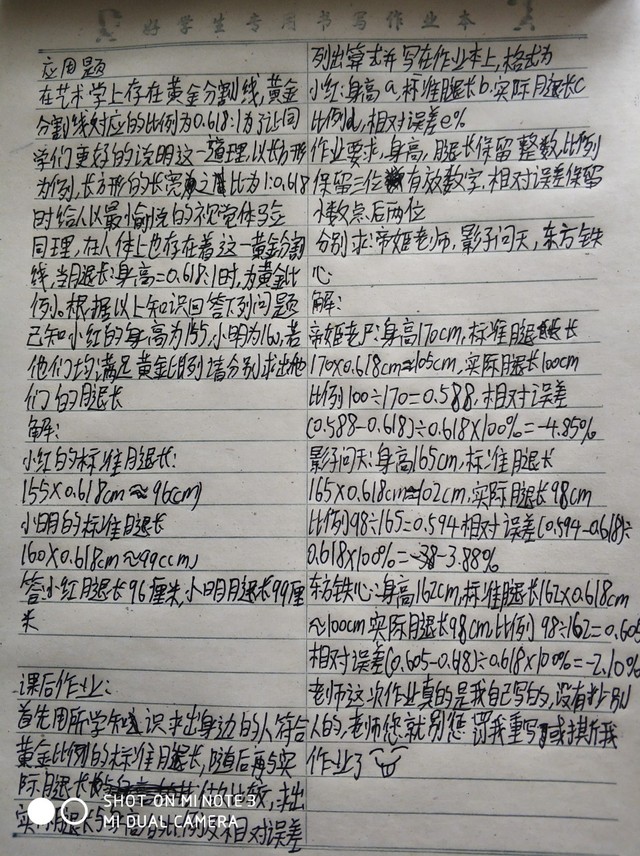 好学生专用书写作业本
应用题
在艺术学上存在黄金分割线,黄金
分割线对应的比例为0.618:1为了让同
学们更好的说明这一道理,以长方形
为例,长方形的长宽之比为1:0.618
时给人以最愉悦的视觉体验
同理,在人体上也存在着这一黄金分割
线,当腿长:身高=0.618:1时,为黄金比
例。根据以上知识回答下列问题
已知小红的身高为155,小明为160,若
他们均满足黄金比例请分别求出他
们的腿长
解:
小红的标准腿长:
155×0.618cm≈96(cm)
小明的标准腿长
160×0.618cm≈99(cm)
答:小红腿长96厘米,小明腿长99厘
米
课后作业:
首先用所学知识求出身边的人符合
黄金比例的标准腿长,随后再与实
际腿长 作比较,求出
实际腿长与身高的比例及相对误差
列出算式并写在作业本上,格式为
小红:身高a,标准腿长b.实际腿长c
比例d,相对误差e%
作业要求,身高,腿长保留整数,比例
保留三位有效数字.相对误差保留
小数点后两位
分别求:帝姬老师,影子问天,东方铁
心
解:
帝姬老尸:身高170cm,标准腿长
170×0.618cm≈105cm,实际腿长100cm
比例100÷170=0.588.相对误差
(0.588-0.618)÷0.618×100%=-4.85%
影子问天:身高165cm,标准腿长
165×0.618cm≈102cm,实际腿长98cm
比例98÷165=0.594相对误差(0.594-0.618)÷
0.618×100%=-3.88%
东方铁心:身高162cm,标准腿长162×0.618cm
≈100cm实际腿长98cm,比例98÷162=0.605
相对误差(0.605-0.618)÷0.618×100%=-2.10%
老师这次作业真的是我自己写的,没有抄别
人的,老师您就别 罚我重写了或撕我
作业了
SHOT ON MI NOTE 3
MI DUAL CAMERA